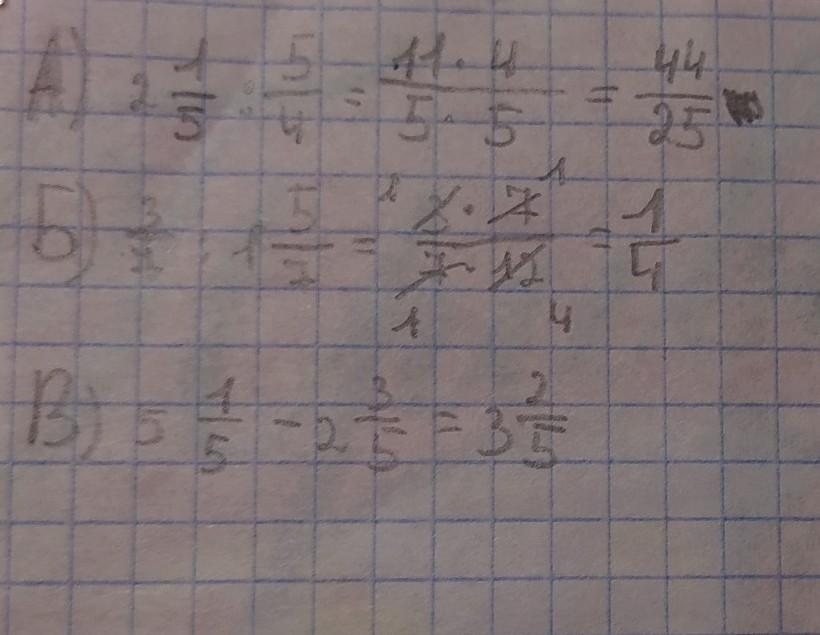 А) 2 1/5 : 5/4 = 11 · 4 / 5 · 5 = 44/25
Б) 3/7 : 1 5/7 = 1 3 · 7 1 / 1 7 · 12 4 = 1/4
В) 5 1/5 - 2 3/5 = 3 2/5